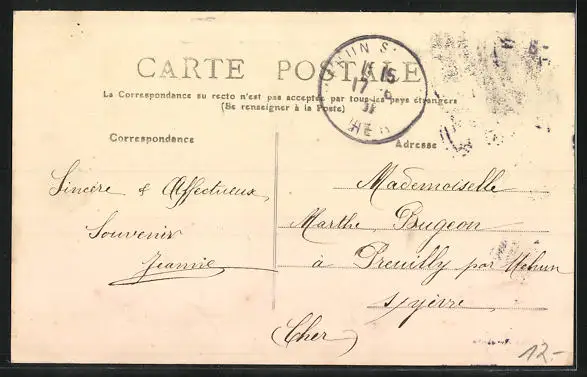 CARTE POSTALE
La Correspondance au recto n'est pas acceptée par tous les pays étrangers
(Se renseigner à la Poste)
Correspondance
Adresse
Sincère & Affectueux
Souvenir
Jeanne
Mademoiselle
Marthe Bugeon
à Preuilly par Mehun
s/yèvre
(Cher)
15
17
12.-